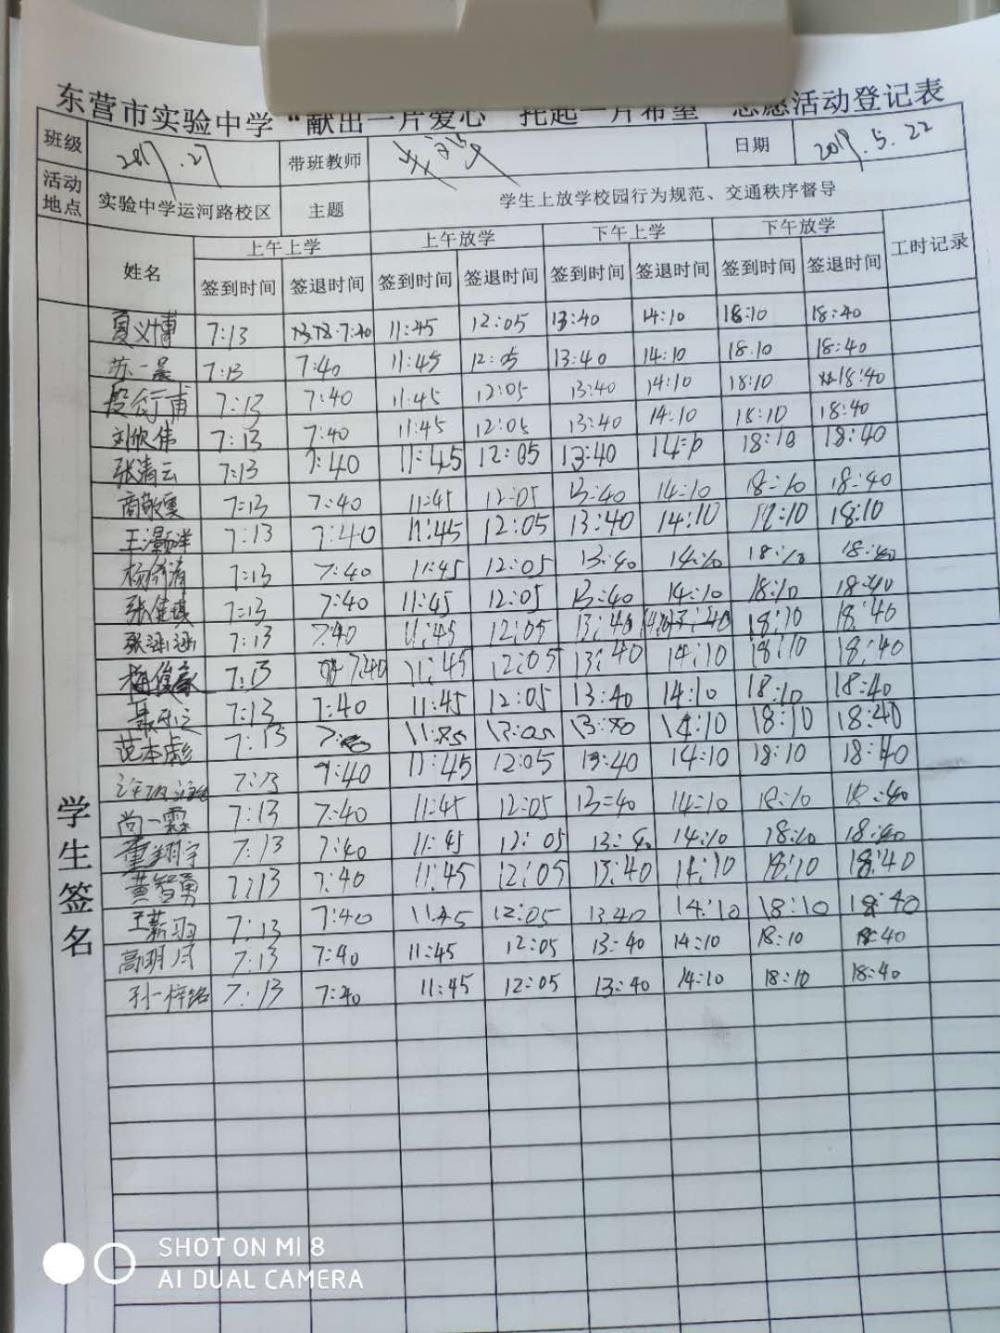 东营市实验中学“献出一片爱心 托起一片希望 志愿活动登记表
班级 2017.27 带班教师 日期 2019.5.22
活动地点 实验中学运河路校区 主题 学生上放学校园行为规范、交通秩序督导
姓名 上午上学 上午放学 下午上学 下午放学 工时记录
签到时间 签退时间 签到时间 签退时间 签到时间 签退时间 签到时间 签退时间
学生签名
夏义博 7:13 7:40 11:45 12:05 13:40 14:10 18:10 18:40
苏一晨 7:13 7:40 11:45 12:05 13:40 14:10 18:10 18:40
7:13 7:40 11:45 12:05 13:40 14:10 18:10 18:40
刘欣伟 7:13 7:40 11:45 12:05 13:40 14:10 18:10 18:40
张清云 7:13 7:40 11:45 12:05 13:40 14:10 18:10 18:40
商敬雯 7:13 7:40 11:45 12:05 13:40 14:10 18:10 18:40
王灏洋 7:13 7:40 11:45 12:05 13:40 14:10 18:10 18:10
7:13 7:40 11:45 12:05 13:40 14:10 18:10 18:40
张佳琪 7:13 7:40 11:45 12:05 13:40 14:10 18:10 18:40
张涵涵 7:13 7:40 11:45 12:05 13:40 18:10 18:40
梅俊豪 7:13 7:40 11:45 12:05 13:40 14:10 18:10 18:40
7:13 7:40 11:45 12:05 13:40 14:10 18:10 18:40
范本彪 7:13 14:10 18:10 18:40
7:13 7:40 11:45 12:05 13:40 14:10 18:10 18:40
尚一霖 7:13 7:40 11:45 12:05 13:40 14:10 18:10 18:40
董翔宇 7:13 7:40 11:45 12:05 13:40 14:10 18:10 18:40
黄智勇 7:13 7:40 11:45 12:05 13:40 14:10 18:10 18:40
7:13 7:40 11:45 12:05 13:40 14:10 18:10 18:40
高明月 7:13 7:40 11:45 12:05 13:40 14:10 18:10 18:40
孙一梓铭 7:13 7:40 11:45 12:05 13:40 14:10 18:10 18:40
SHOT ON MI 8
AI DUAL CAMERA